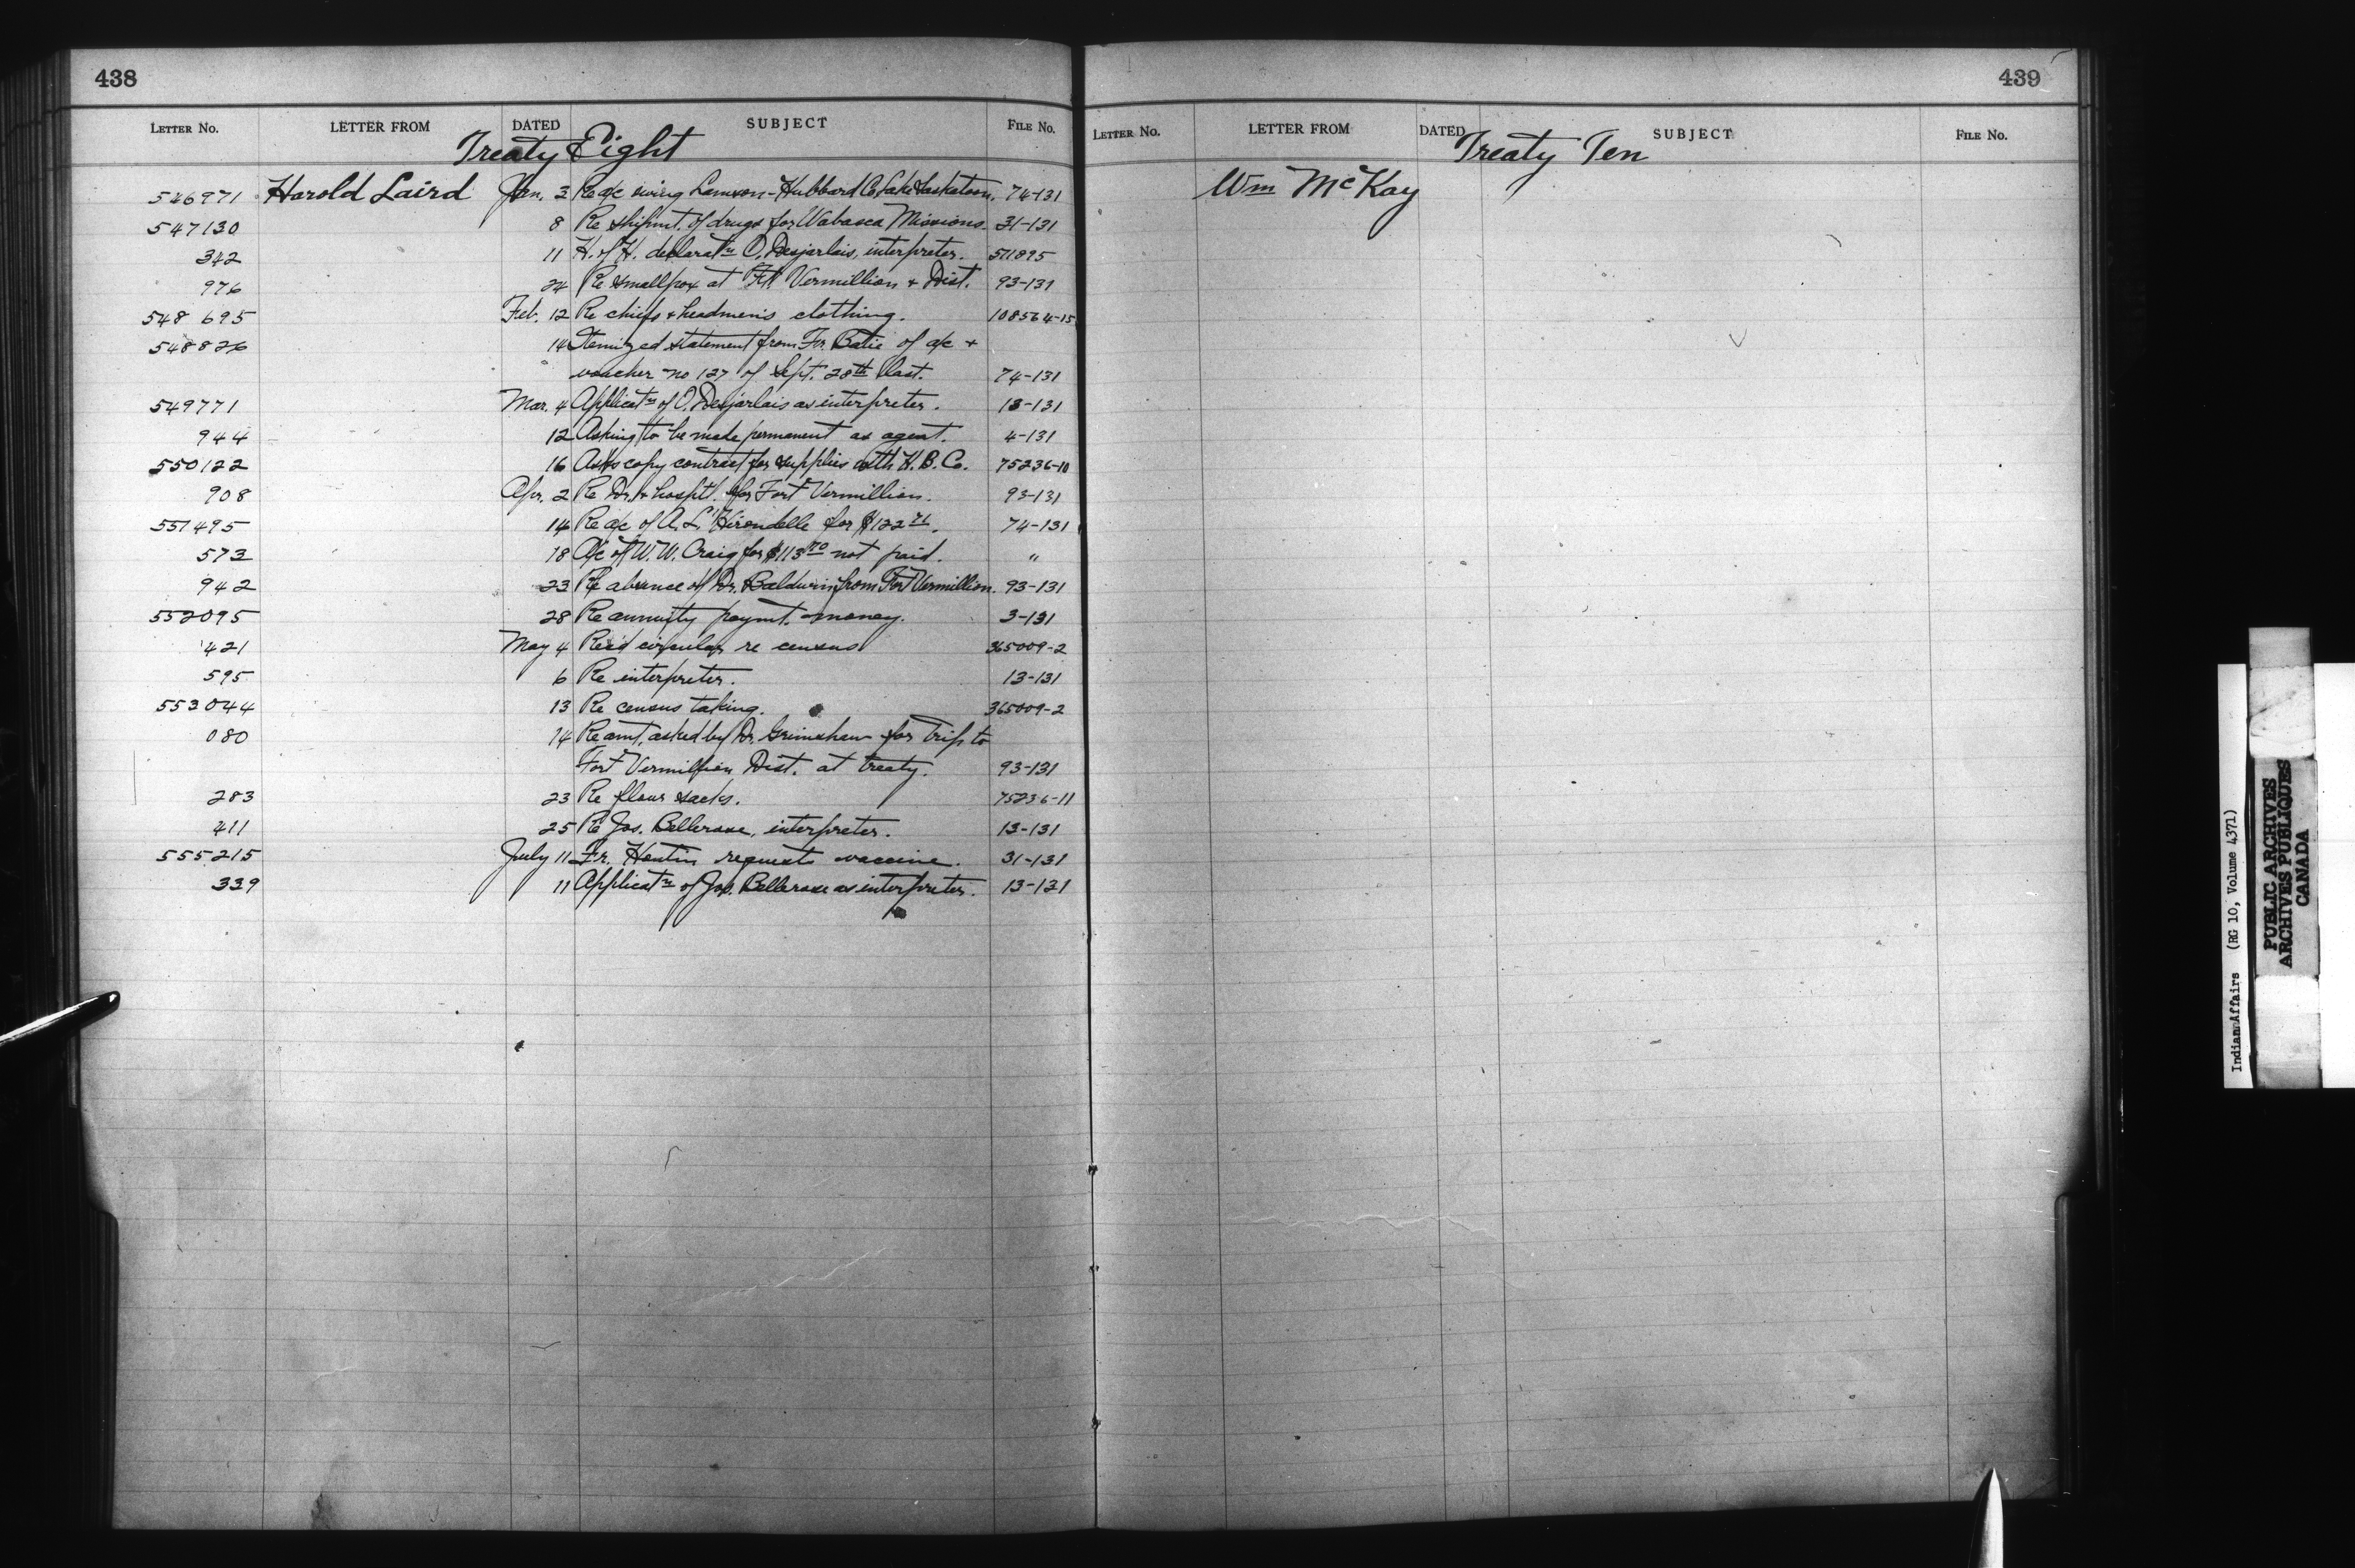 438
LETTER NO. LETTER FROM DATED SUBJECT FILE NO.
Treaty Eight
546971 Harold Laird Jan. 3 Re a/c owing Lamson-Hubbard Co. Lake Saskatoon. 74-131
547130 8 Re shipmt. of drugs for Wabasca Missions. 31-131
342 11 H. of H. declaratn O. Desjarlais, interpreter. 511895
976 24 Re smallpox at Ft. Vermillion + Dist. 93-131
548 695 Feb. 12 Re chiefs + headmen's clothing. 108564-15
548826 14 Itemized statement from Fr. Batie of a/c +
voucher no 127 of Sept. 28th last. 74-131
549771 Mar. 4 Applicatn of O. Desjarlais as interpreter. 13-131
944 12 Asking to be made permanent as agent. 4-131
550122 16 Asks copy contract for supplies with H.B. Co. 75236-10
908 Apr. 2 Re Dr. + hosptl. for Fort Vermillion. 93-131
551495 14 Re a/c of A. L'Hirondelle for $122 71. 74-131
573 18 A/c of W.W. Craig for $113 70 not paid. "
942 23 Re absence of Dr. Baldwin from Fort Vermillion. 93-131
552095 28 Re annuity paymt. money. 3-131
421 May 4 Rec'd circular re census 365009-2
595 6 Re interpreter. 13-131
553044 13 Re census taking. 365009-2
080 14 Re amt. asked by Dr. Grimshaw for trip to
Fort Vermillion Dist. at treaty. 93-131
283 23 Re flour sacks. 75236-11
411 25 Re Jos. Bellerose, interpreter. 13-131
555215 July 11 Fr. Hautin requests vaccine. 31-131
339 11 Applicatn of Jos. Bellerose as interpreter. 13-131
439
LETTER NO. LETTER FROM DATED SUBJECT FILE NO.
Treaty Ten
Wm McKay
Indian Affairs (RG 10, Volume 4371)
PUBLIC ARCHIVES
ARCHIVES PUBLIQUES
CANADA